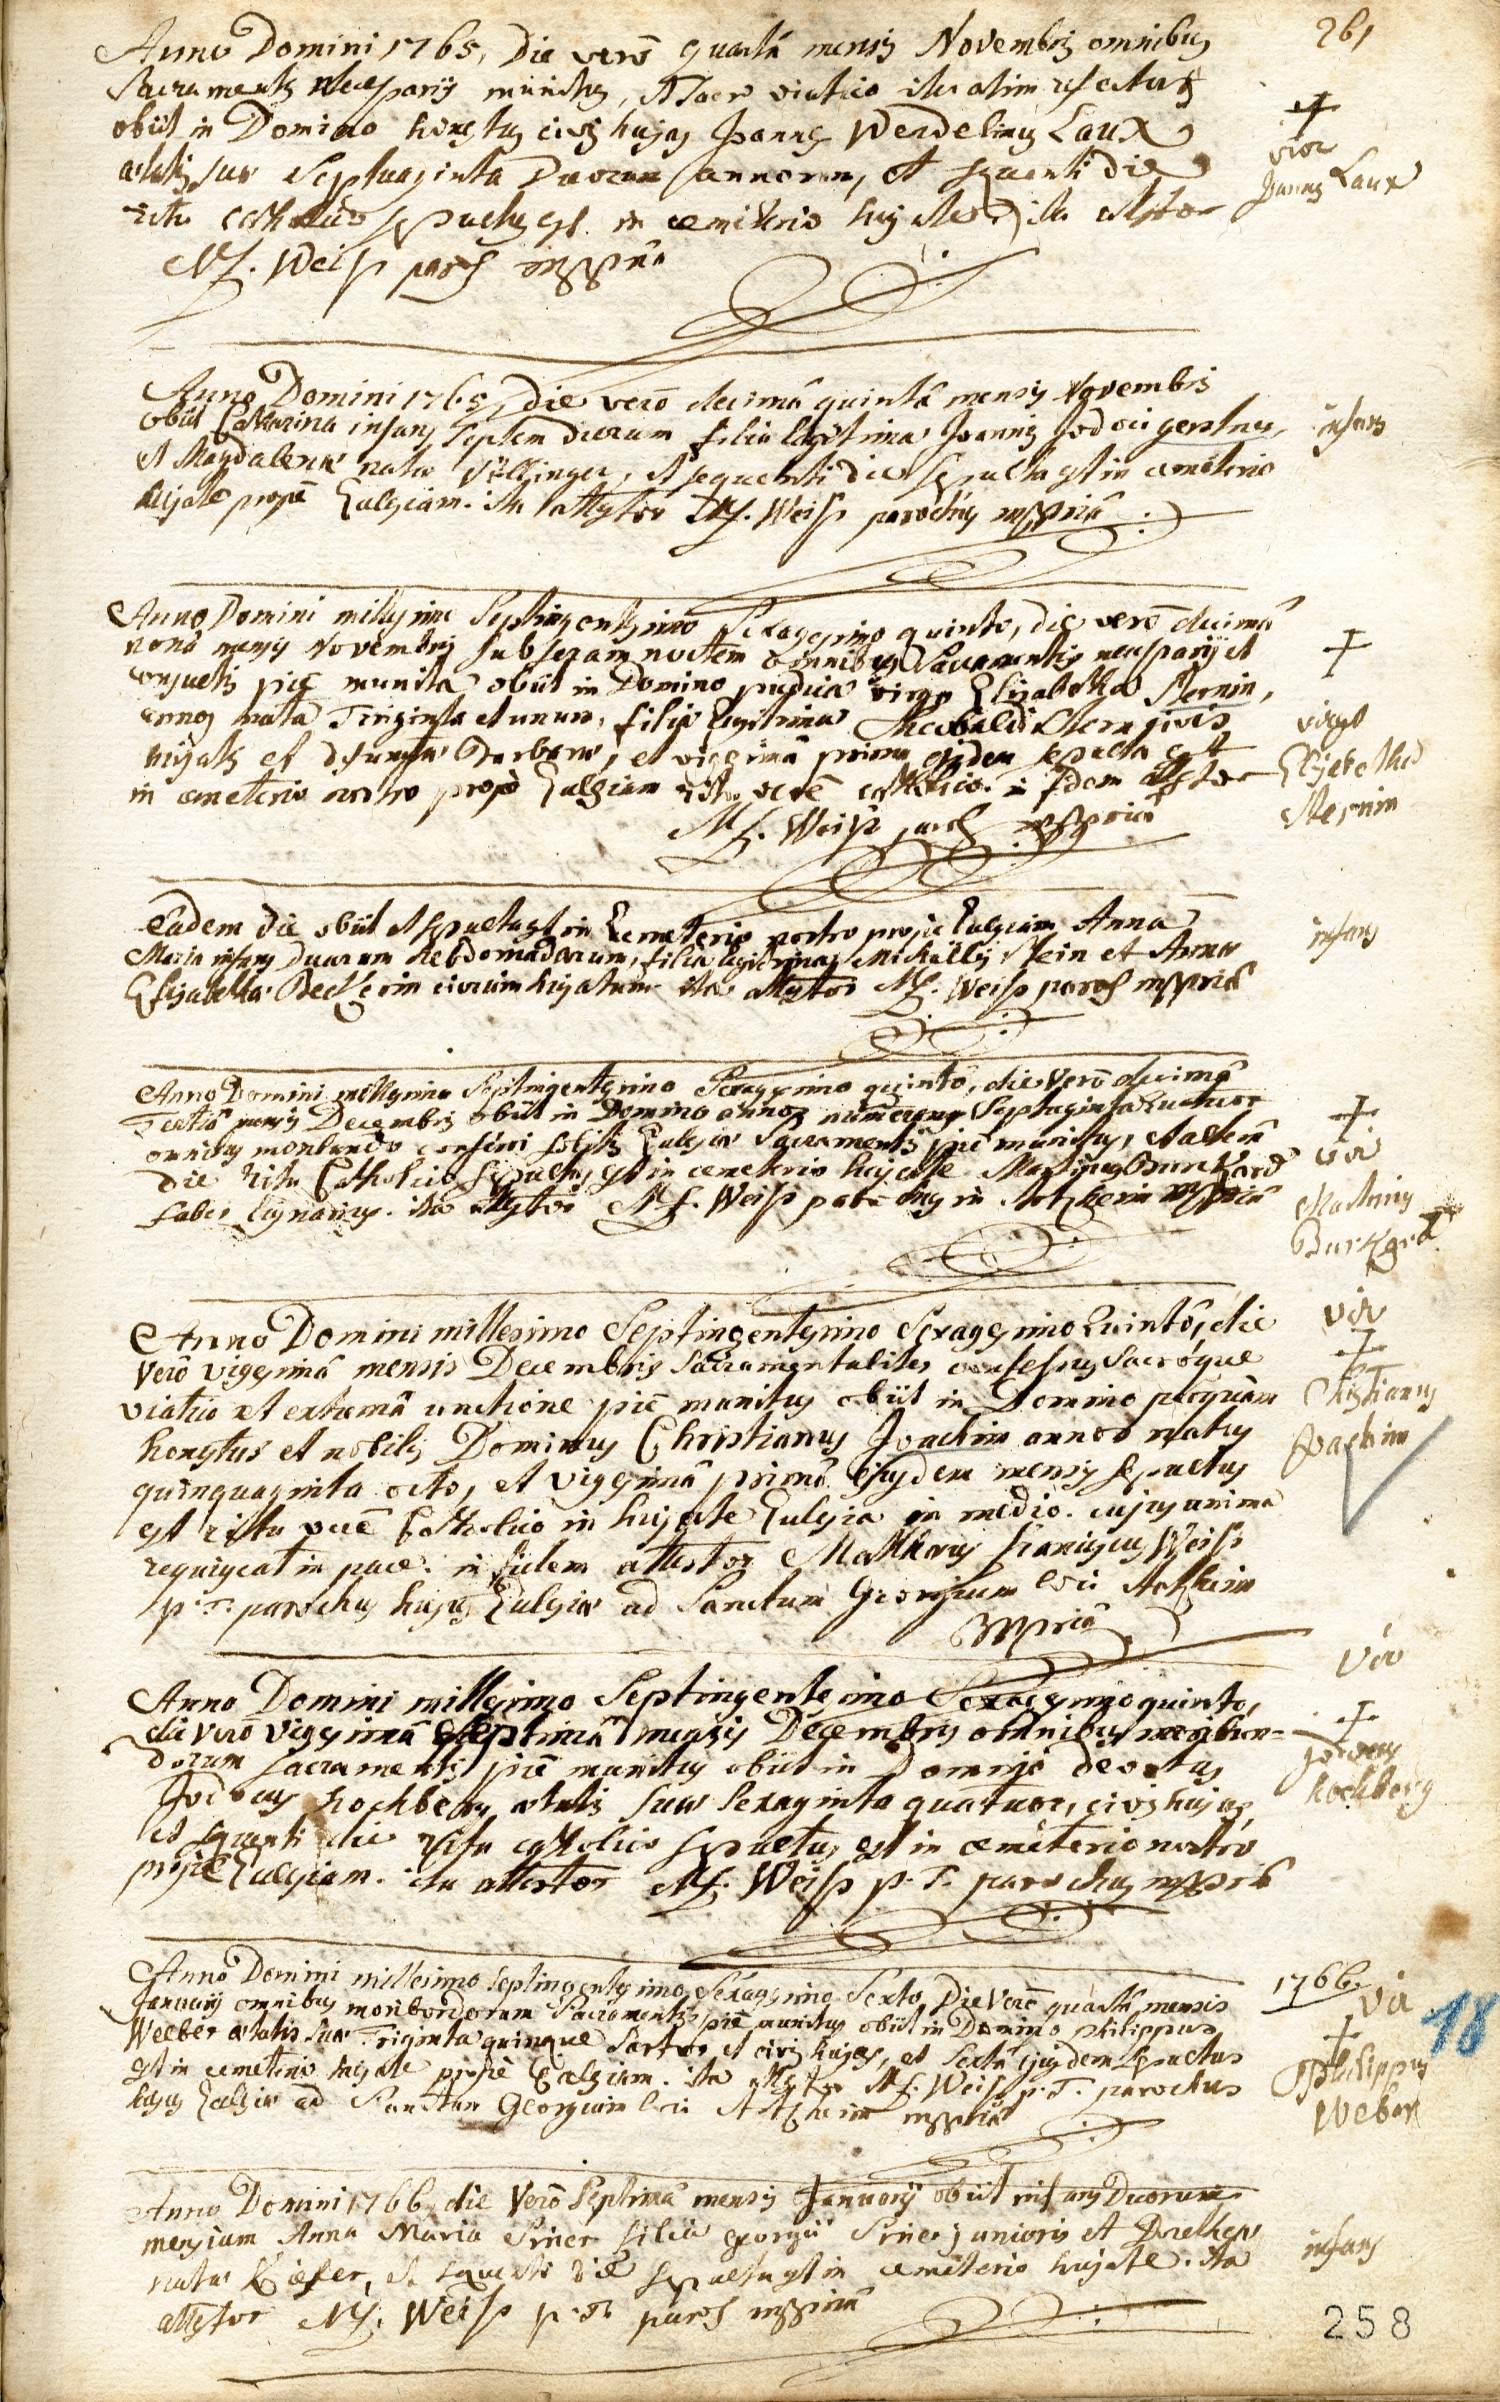 261
Anno Domini 1765, die verò quartâ mensis Novembris omnibus
Sacramentis necessarijs munitus, et sacro viatico iteratim refectus
obiit in Domino honestus civis hujas Joannes Wendelinus Laux
ætatis suæ Septuaginta Duorum annorum, et sequenti die
ritu catholico sepultus est in cœmiterio hujate, ita attestor
M.f. Weiss paroch mppriâ
+
vir
Joannes Laux
Anno Domini 1765, die verò decimâ quintâ mensis Novembris
obiit Catharina infans septem dierum filia legitima Joannis Jodoci gerstner,
et Magdalenæ natæ Villinger, et sequenti die sepulta est in cœmeterio
hujate propè Ecclesiam. ita attestor M.f. Weiss parochus mppriâ
infans
Anno Domini millesimo Septingentesimo Sexagesimo quinto, die verò decimâ
nonâ mensis Novembris sub seram noctem omnibus Sacramentis necessarijs et
consuetis piè munita obiit in Domino pudica virgo Elisabetha Sternin,
annos nata Triginta et unum, filia legitima Theobaldi Stern civis
hujatis et defunctæ Barbaræ, et vigesimâ primâ ejusdem sepulta est
in cœmeterio nostro propè Ecclesiam ritu verè catholico. in fidem attestor
M.f. Weiss paroch mppriâ
+
virgo
Elisabetha
Sternin
Eadem die obiit et sepulta est in Cœmeterio nostro propè Ecclesiam Anna
Maria infans duarum hebdomadarum, filia legitima Michaëlis Stein et Annæ
Elisabetha Beckerin civium hujatum ita attestor M.f. Weiss paroch mppriâ
infans
Anno Domini millesimo Septingentesimo Sexagesimo quinto, die verò decimâ
Tertiâ mensis Decembris obiit in Domino annos numerans Septuaginta quatuor
omnibus moribundo conferri solitis Ecclesiæ Sacramentis piè munitus, et alterâ
die ritu Catholico sepultus est in cemeterio hujate Martinus Burckard
faber lignarius. ita attestor M.f. Weiss parochus in Atzheim mppriâ
+
vir
Martinus
Burckard
Anno Domini millesimo Septingentesimo Sexagesimo Quintô, die
verò vigesimâ mensis Decembris Sacramentaliter confessus sacróque
viatico et extremâ unctione piè munitus obiit in Domino perquàm
honestus et nobilis Dominus Christianus Joachim annos natus
quinquaginta octo, et vigesimâ primâ ejusdem mensis sepultus
est ritu verè Catholico in hujate Ecclesia in medio. cujus anima
requiescat in pace. in fidem attestor Mathæus franciscus Weiss
p.T. parochus hujus Ecclesiæ ad Sanctum Georgium loci Atzheim
mppriâ
vir
+
Christianus
Joachim
Anno Domini millesimo Septingentesimo Sexagesimo quinto,
die verò vigesimâ septimâ mensis Decembris omnibus moribun=
dorum sacramentis piè munitus obiit in Domino devotus
Jodocus hochberg ætatis suæ Sexaginta quatuor, civis hujas,
et sequenti die ritu catholico sepultus est in cœmeterio nostro
propè Ecclesiam. ita attestor M.f. Weiss p.T. parochus mppriâ
vir
+
Jodocus
hochberg
Anno Domini millesimo septingentesimo Sexagesimo Sexto Die verò quartâ mensis
Januarij omnibus moribundorum Sacramentis piè munitus obiit in Domino philippus
Weeber ætatis suæ Triginta quinque Sartor et civis hujas, et Sextâ ejusdem sepultus
est in cœmeterio hujate propè Ecclesiam. ita attestor M.f. Weiss p.T. parochus
hujus Ecclesiæ ad Sanctum Georgium loci Atzheim mppriâ
1766
vir
18
+
Philippus
Weber
Anno Domini 1766 die verò Septimâ mensis Januarij obiit infans Duorum
mensium Anna Maria Siner filia georgii Siner junioris et Dorotheæ
natæ Kiefer, et sequenti die sepulta est in cœmiterio hujate. ita
attestor M.f. Weiss p.T. paroch mppriâ
infans
258